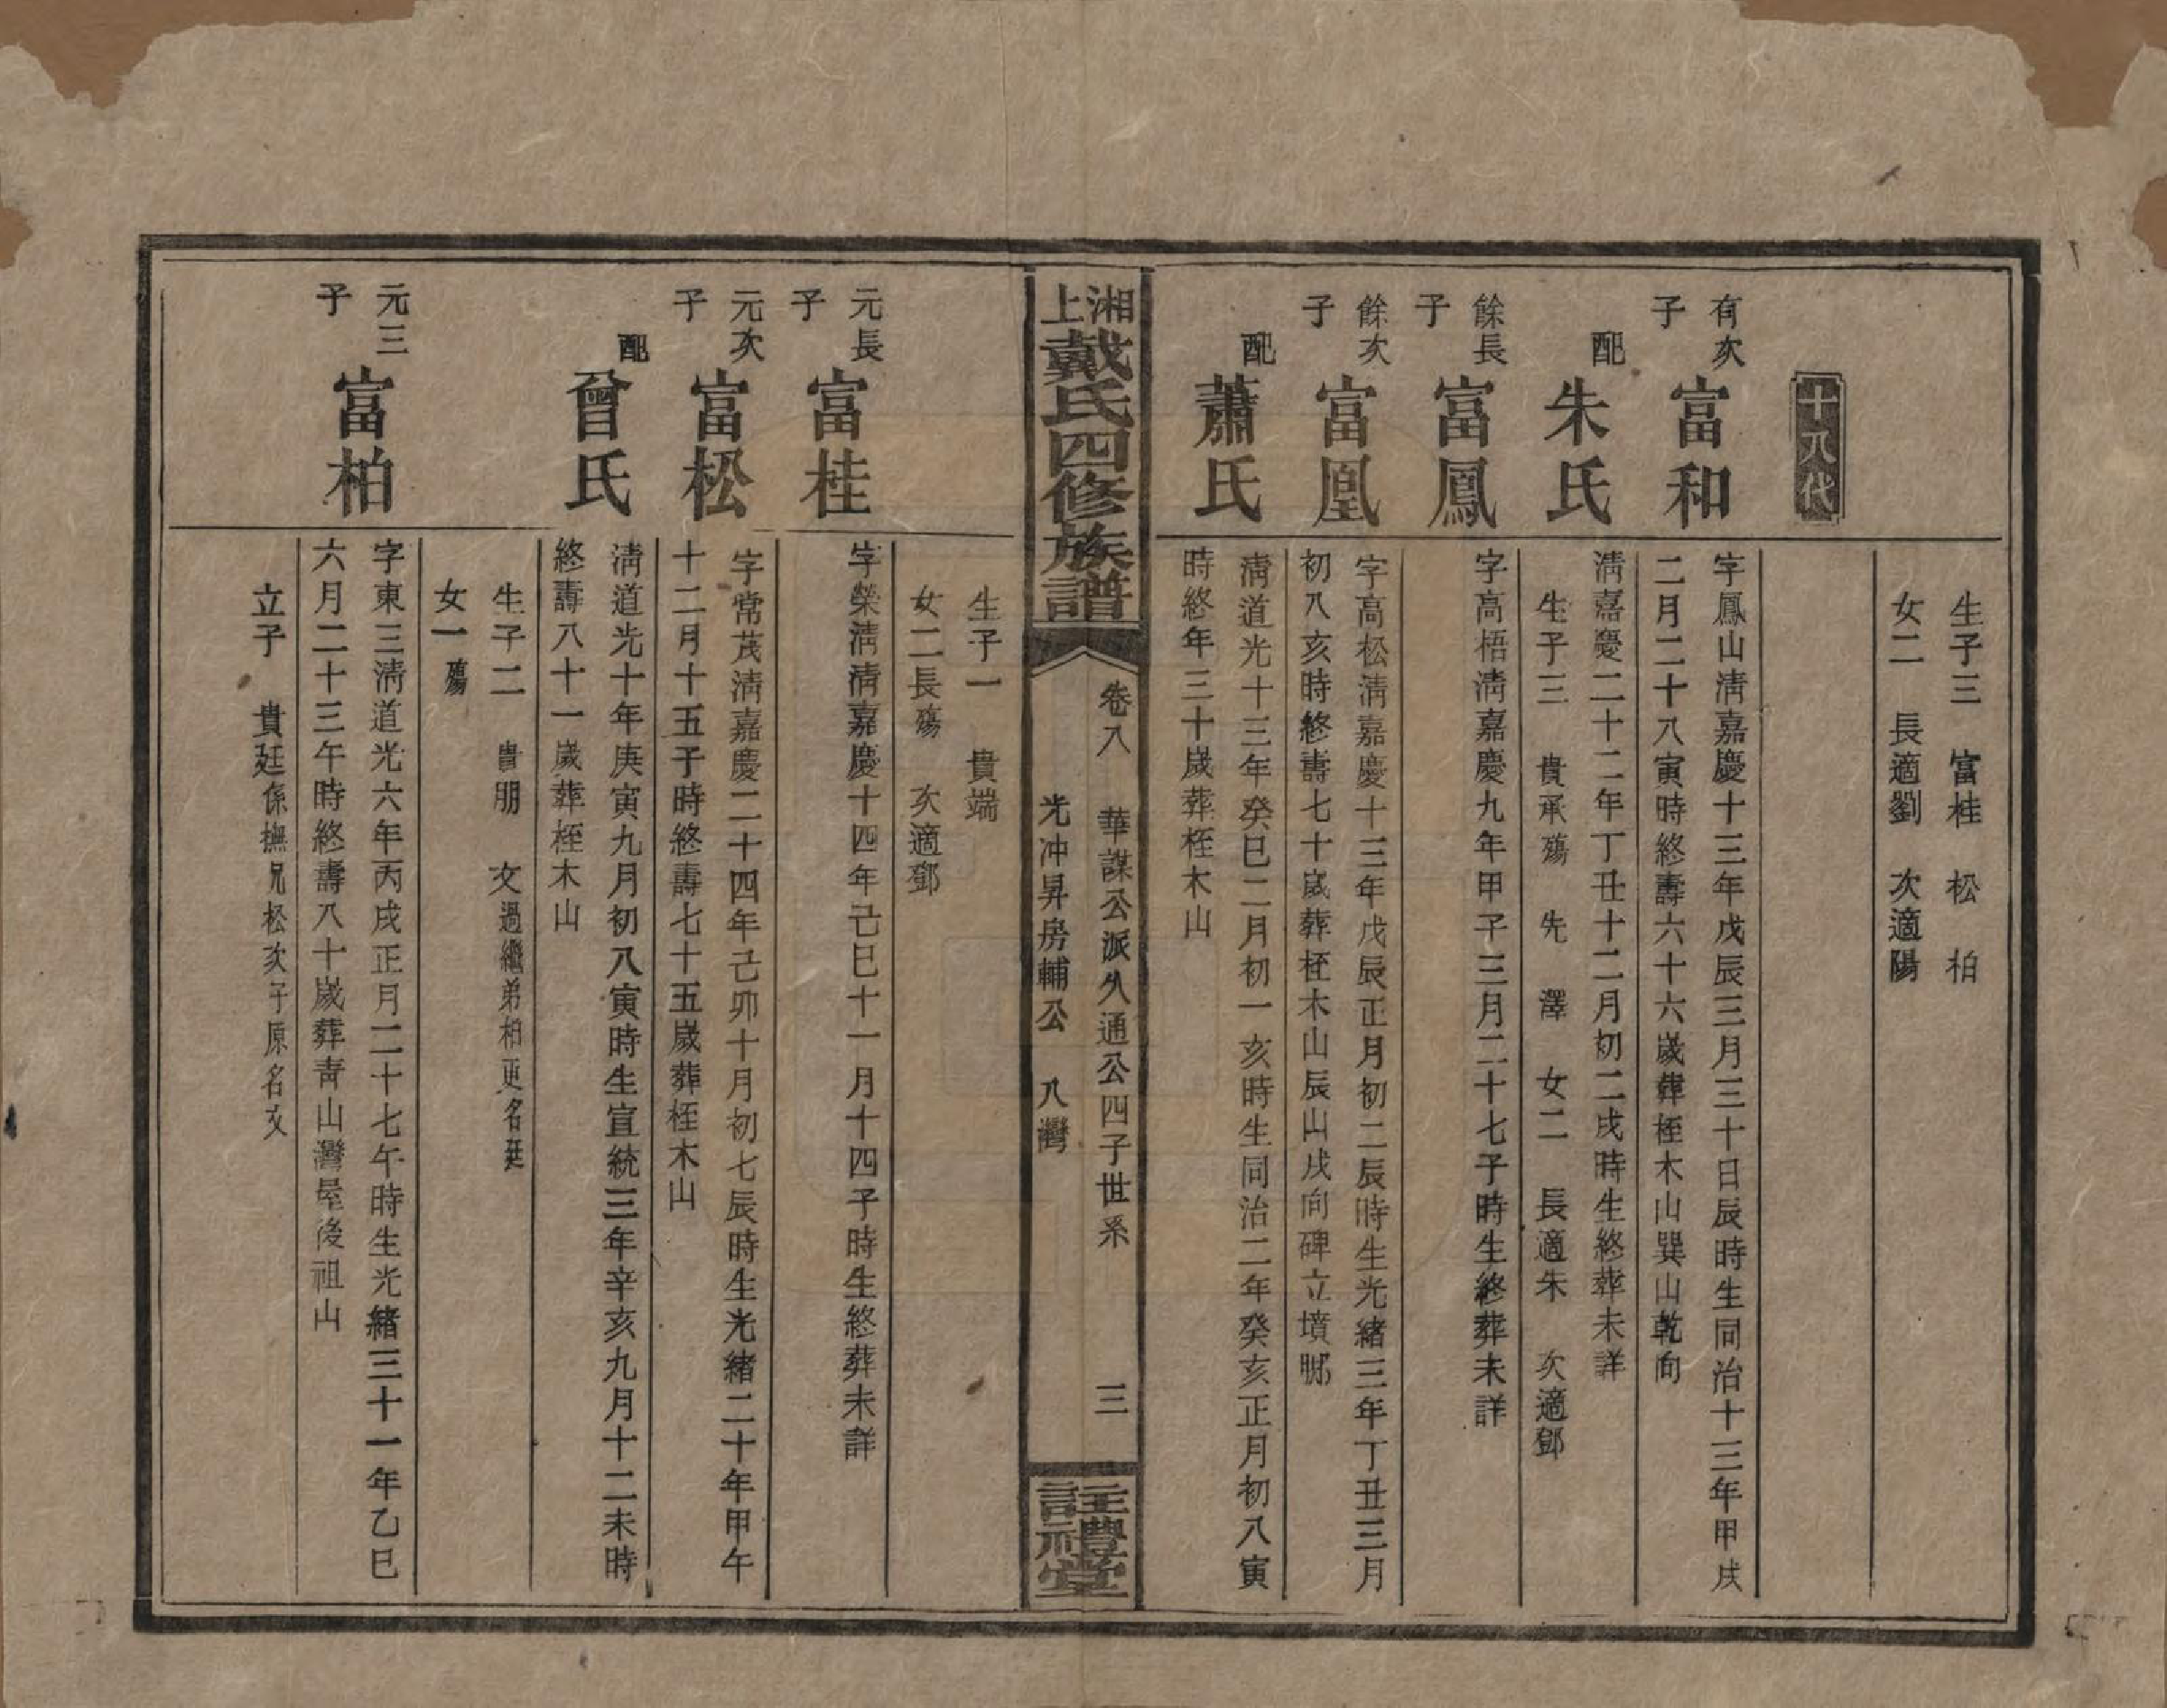 生子三　富桂　松　柏
女二　長適劉　次適陽
十八代
有次子
富和
字鳳山清嘉慶十三年戊辰三月三十日辰時生同治十三年甲戌
二月二十八寅時終壽六十六歲葬桎木山巽山乾向
配
朱氏
清嘉慶二十二年丁丑十二月初二戌時生終葬未詳
生子三　貴承殤　先　澤　女二　長適朱　次適鄧
餘長子
富鳳
字高梧清嘉慶九年甲子三月二十七子時生終葬未詳
餘次子
富凰
字高松清嘉慶十三年戊辰正月初二辰時生光緒三年丁丑三月
初八亥時終壽七十歲葬桎木山辰山戌向碑立墳
配
蕭氏
清道光十三年癸巳二月初一亥時生同治二年癸亥正月初八寅
時終年三十歲葬桎木山
湘上戴氏四修族譜
卷八　華謀公派久通公四子世系　三
光冲昇房輔公　八灣
註禮堂
生子一　貴端
女二長殤　次適鄧
元長子
富桂
字榮清清嘉慶十四年己巳十一月十四子時生終葬未詳
元次子
富松
字常茂清嘉慶二十四年己卯十月初七辰時生光緒二十年甲午
十二月十五子時終壽七十五歲葬桎木山
配
曾氏
清道光十年庚寅九月初八寅時生宣統三年辛亥九月十二未時
終壽八十一歲葬桎木山
生子二　貴朋　文過繼弟柏更名廷
女一殤
元三子
富柏
字東三清道光六年丙戌正月二十七午時生光緒三十一年乙巳
六月二十三午時終壽八十歲葬青山灣屋後祖山
立子　貴廷係撫兄松次子原名文